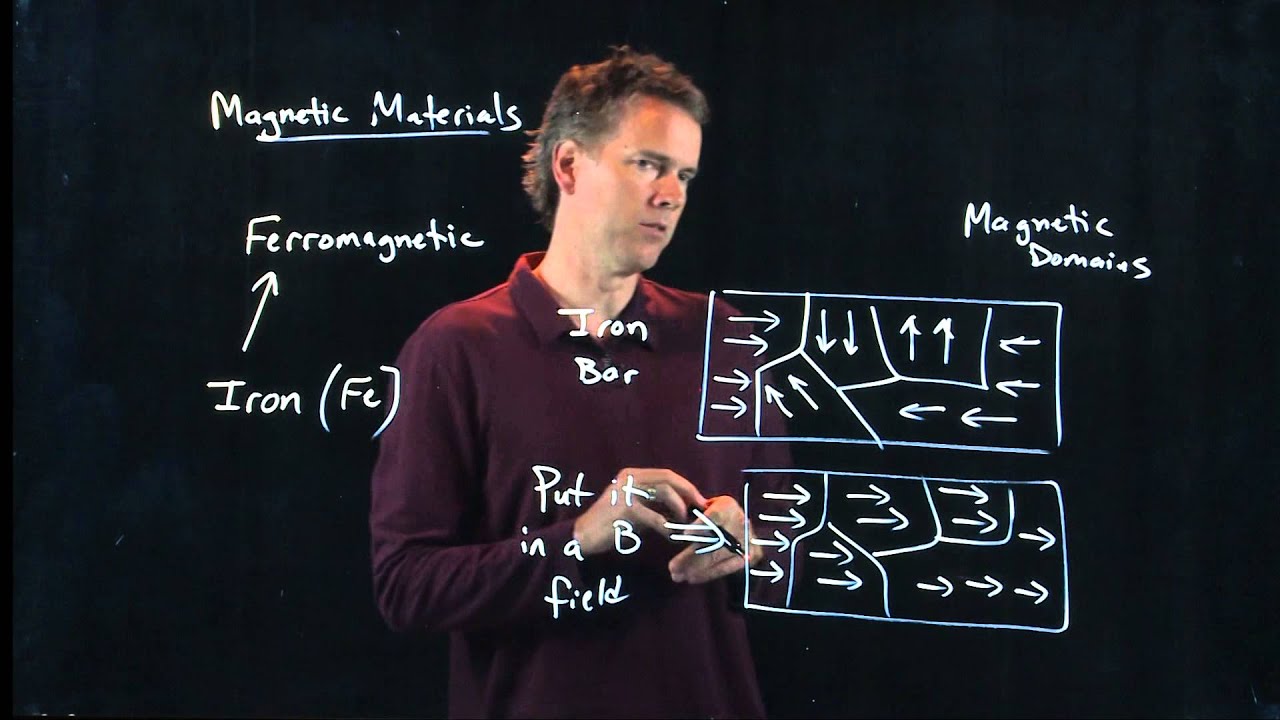 Magnetic Materials
Ferromagnetic
Iron (Fe)
Magnetic
Domains
Iron
Bar
Put it
in a B
field